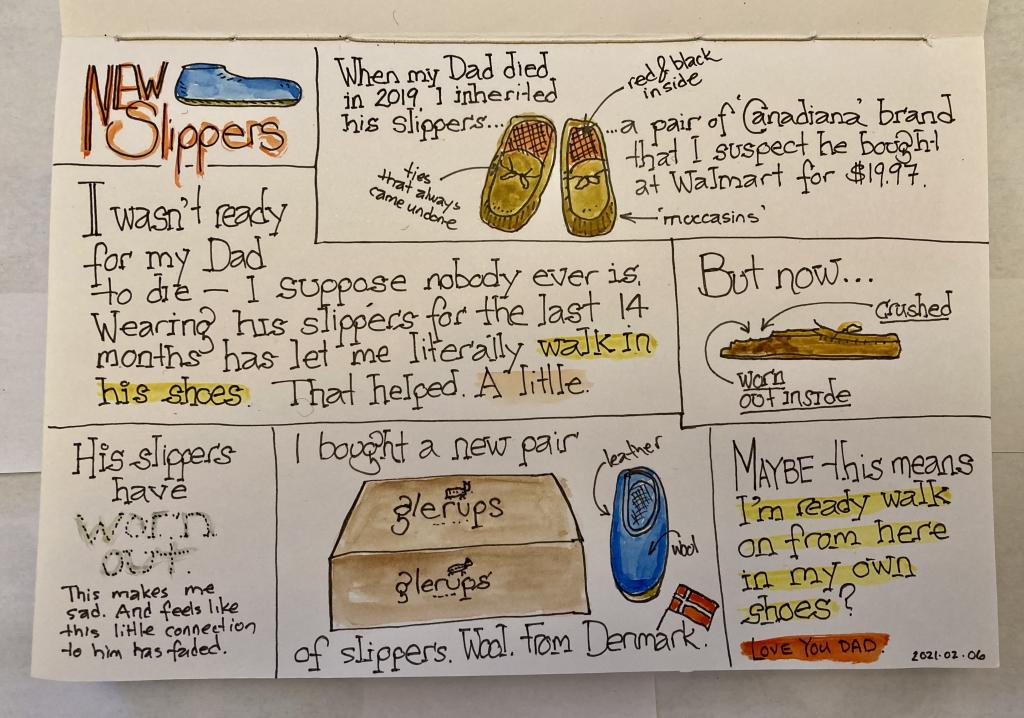 NEW
Slippers
When my Dad died
in 2019, I inherited
his slippers...
red & black
inside
...a pair of 'Canadiana' brand
that I suspect he bought
at Walmart for $19.97.
ties
that always
came undone
'moccasins'
I wasn't ready
for my Dad
to die – I suppose nobody ever is.
Wearing his slippers for the last 14
months has let me literally walk in
his shoes. That helped. A little.
But now...
crushed
worn
out inside
His slippers
have
worn
out.
This makes me
sad. And feels like
this little connection
to him has faded.
I bought a new pair
glerups
glerups
leather
wool
of slippers. Wool. From Denmark.
MAYBE this means
I'm ready walk
on from here
in my own
shoes?
LOVE YOU DAD.
2021.02.06